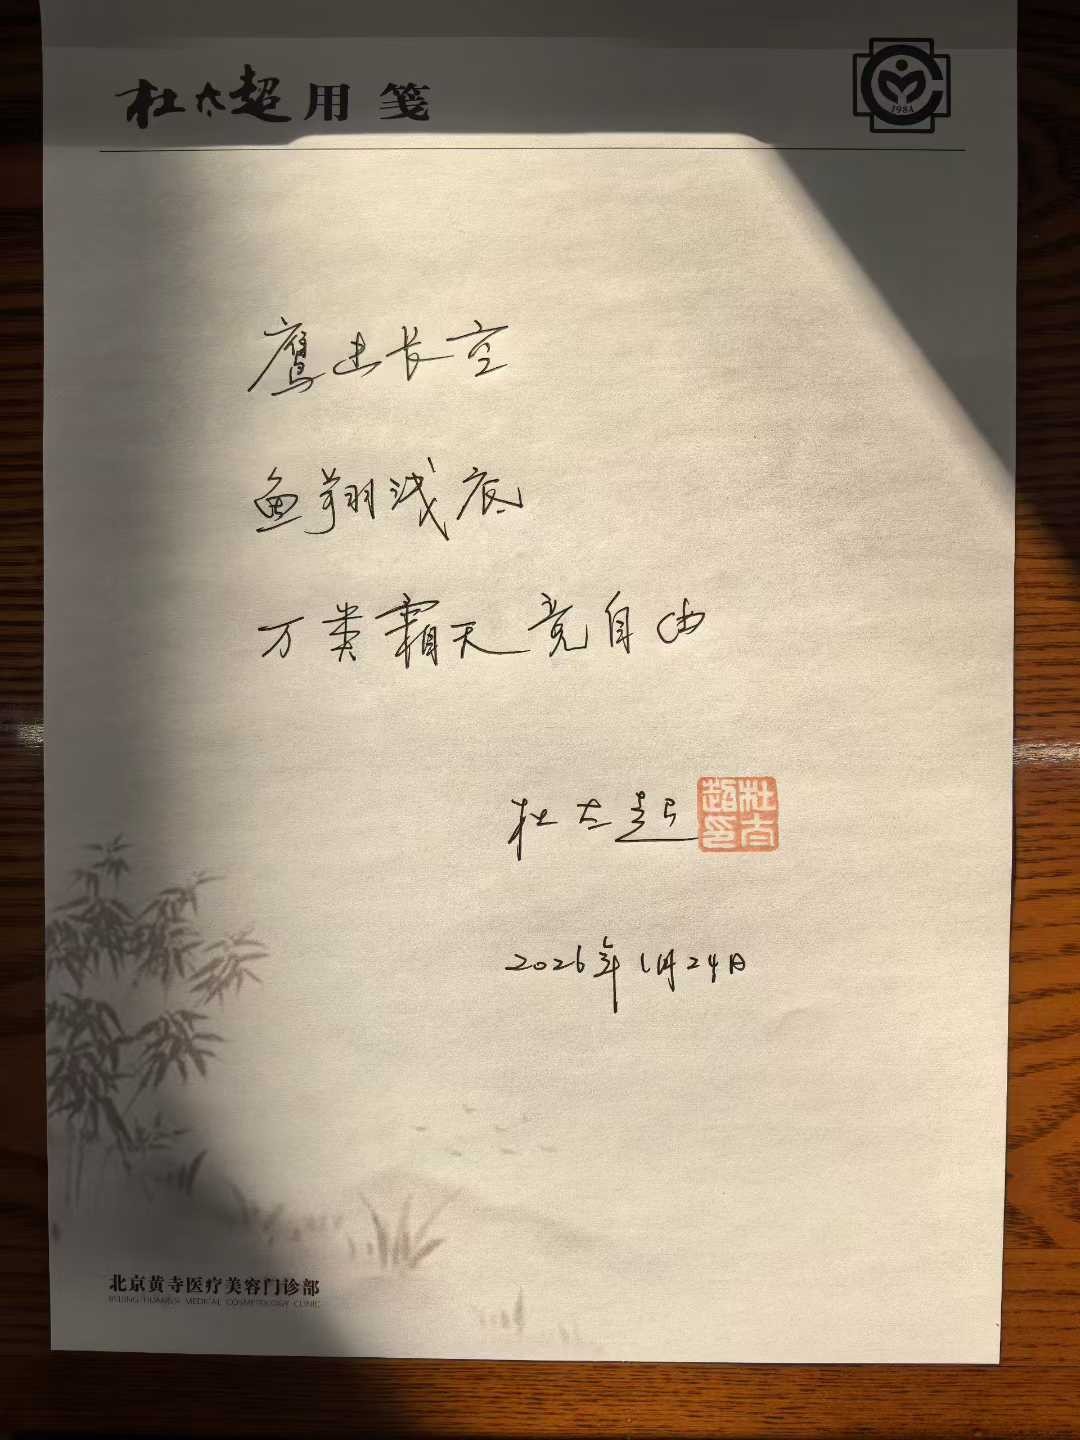 杜太超用笺
1984
鹰击长空
鱼翔浅底
万类霜天竞自由
杜太超
杜太超印
2026年1月24日
北京黄寺医疗美容门诊部
BEIJING HUANGSI MEDICAL COSMETOLOGY CLINIC